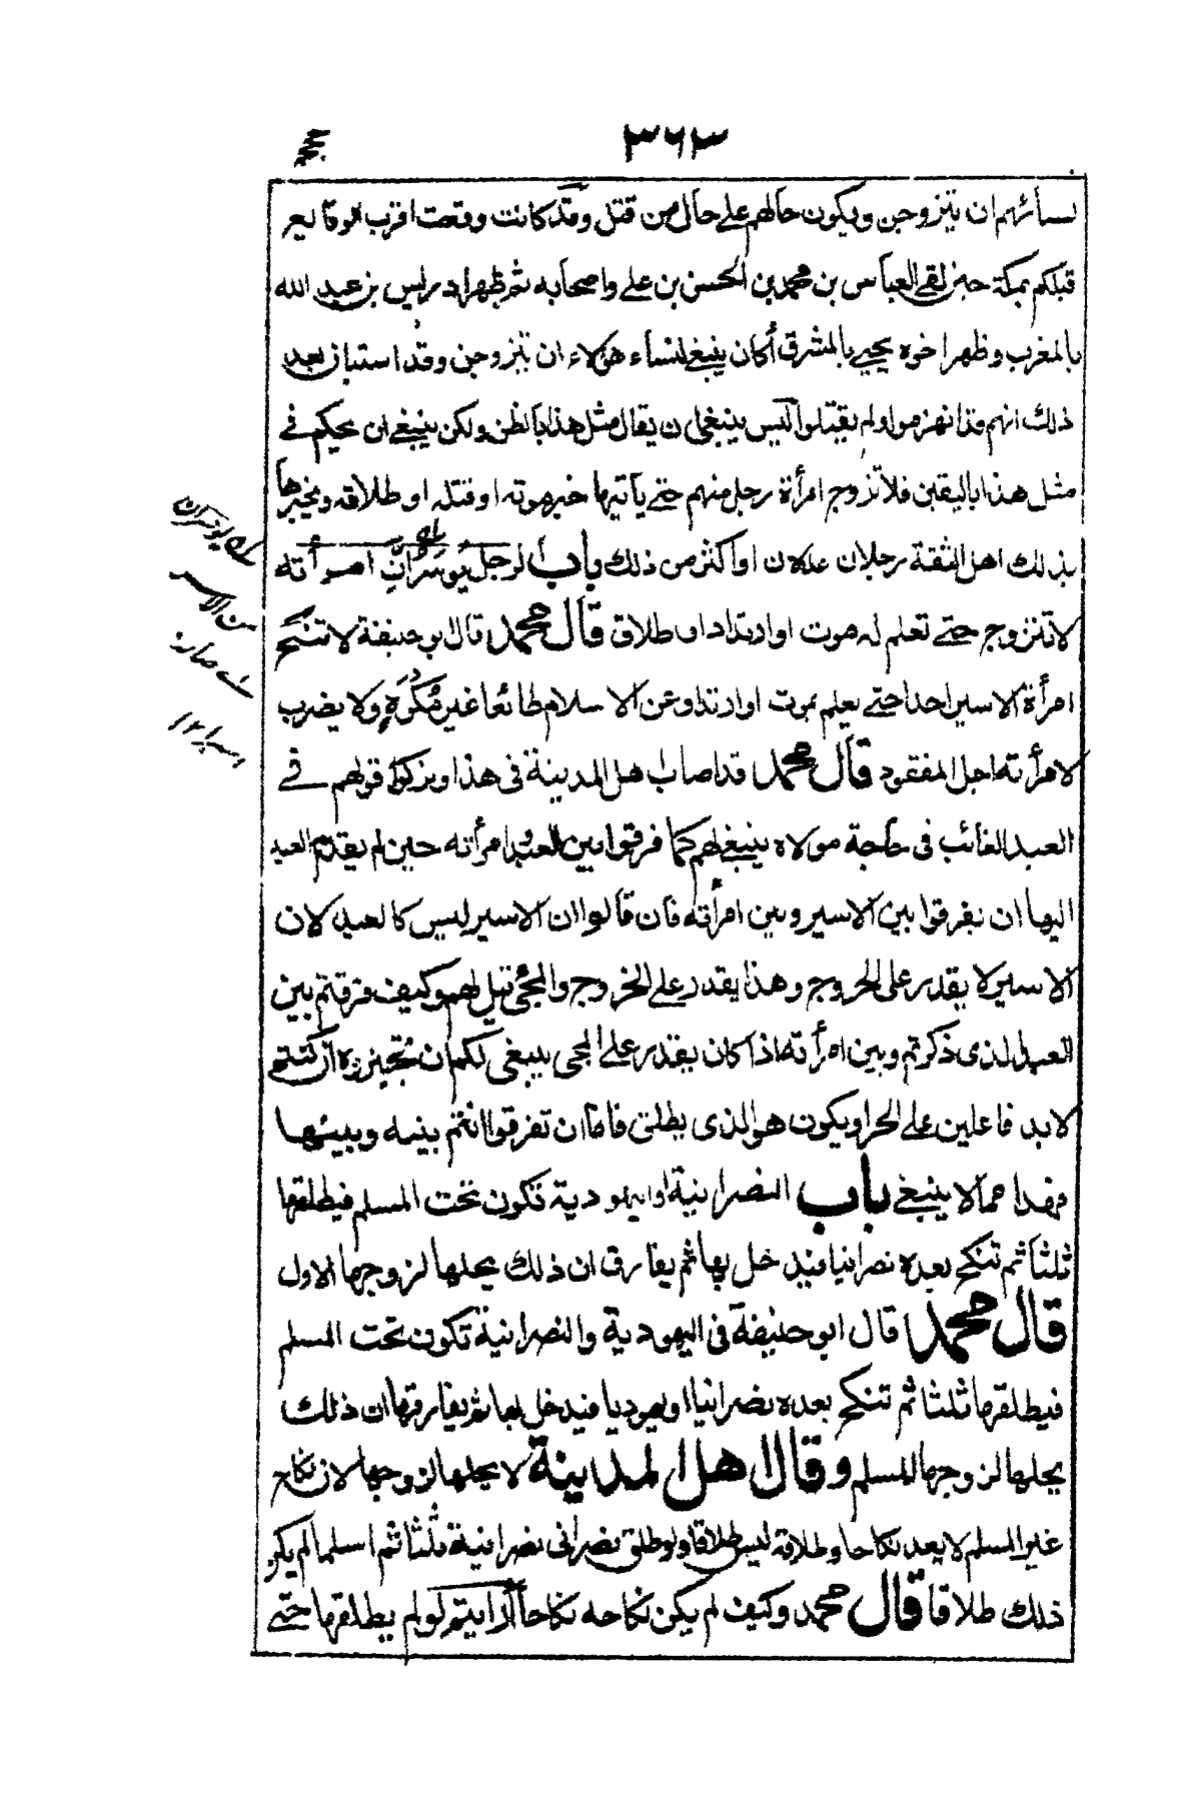 ٣٦٣
نسائهم ان يتزوجن ويكون حالهم على حال من قتل وقد كانت وقعت اقرب الوقائع
قبلكم بمكة حين لقى العباس بن محمد بن الحسن بن على واصحابه ثم ظهر ادريس بن عبد الله
بالمغرب وظهر اخوه يحيى بالمشرق أكان ينبغى لنساء هؤلاء ان يتزوجن وقد استبان بعد
ذلك انهم قد انهزموا ولم يقتلوا أليس ينبغى ان يقال مثل هذا بالظن ولكن ينبغى ان يحكم فى
مثل هذا باليقين فلا تزوج امرأة رجل منهم حتى يأتيها خبر موته او قتله او طلاقه ويخبرها
بذلك اهل الثقة رجلان عدلان او اكثر من ذلك باب الرجل يوسر ان امرأته
لا تتزوج حتى تعلم له موت او ارتداد او طلاق قال محمد قال ابو حنيفة لا تنكح
امرأة الاسير احدا حتى يعلم بموت او ارتداد عن الاسلام طائعا غير مكره ولا يضرب
لامرأته اجل المفقود قال محمد قد اصاب اهل المدينة فى هذا وتركوا قولهم فى
العبد الغائب فى حاجة مولاه ينبغى لهم كما فرقوا بين العبد وامرأته حين لم يقدم العبد
اليها ان يفرقوا بين الاسير وبين امرأته فان قالوا ان الاسير ليس كالعبد لان
الاسير لا يقدر على الخروج وهذا يقدر على الخروج والمجئ قيل لهم وكيف فرقتم بين
العبد الذى ذكرتم وبين امرأته اذا كان يقدر على المجى ينبغى لكم ان تجيزوه ان كنتم
لا بد فاعلين على الحر ويكون هو الذى يطلق فاما ان تفرقوا انتم بينه وبينها
فهذا مما لا ينبغى باب النصرانية او اليهودية تكون تحت المسلم فيطلقها
ثلثا ثم تنكح بعده نصرانيا فيدخل بها ثم يفارق ان ذلك يحلها لزوجها الاول
قال محمد قال ابو حنيفة فى اليهودية والنصرانية تكون تحت المسلم
فيطلقها ثلثا ثم تنكح بعده نصرانيا او يهوديا فيدخل بها ثم يفارقها ان ذلك
يحلها لزوجها المسلم وقال اهل المدينة لا يحلها لزوجها لان نكاح
غير المسلم لا يعد نكاحا وطلاقه ليس طلاقا ولو طلق نصرانى نصرانية ثلثا ثم اسلما لم يكن
ذلك طلاقا قال محمد وكيف لم يكن نكاحه نكاحا أرايتم لو لم يطلقها حتى